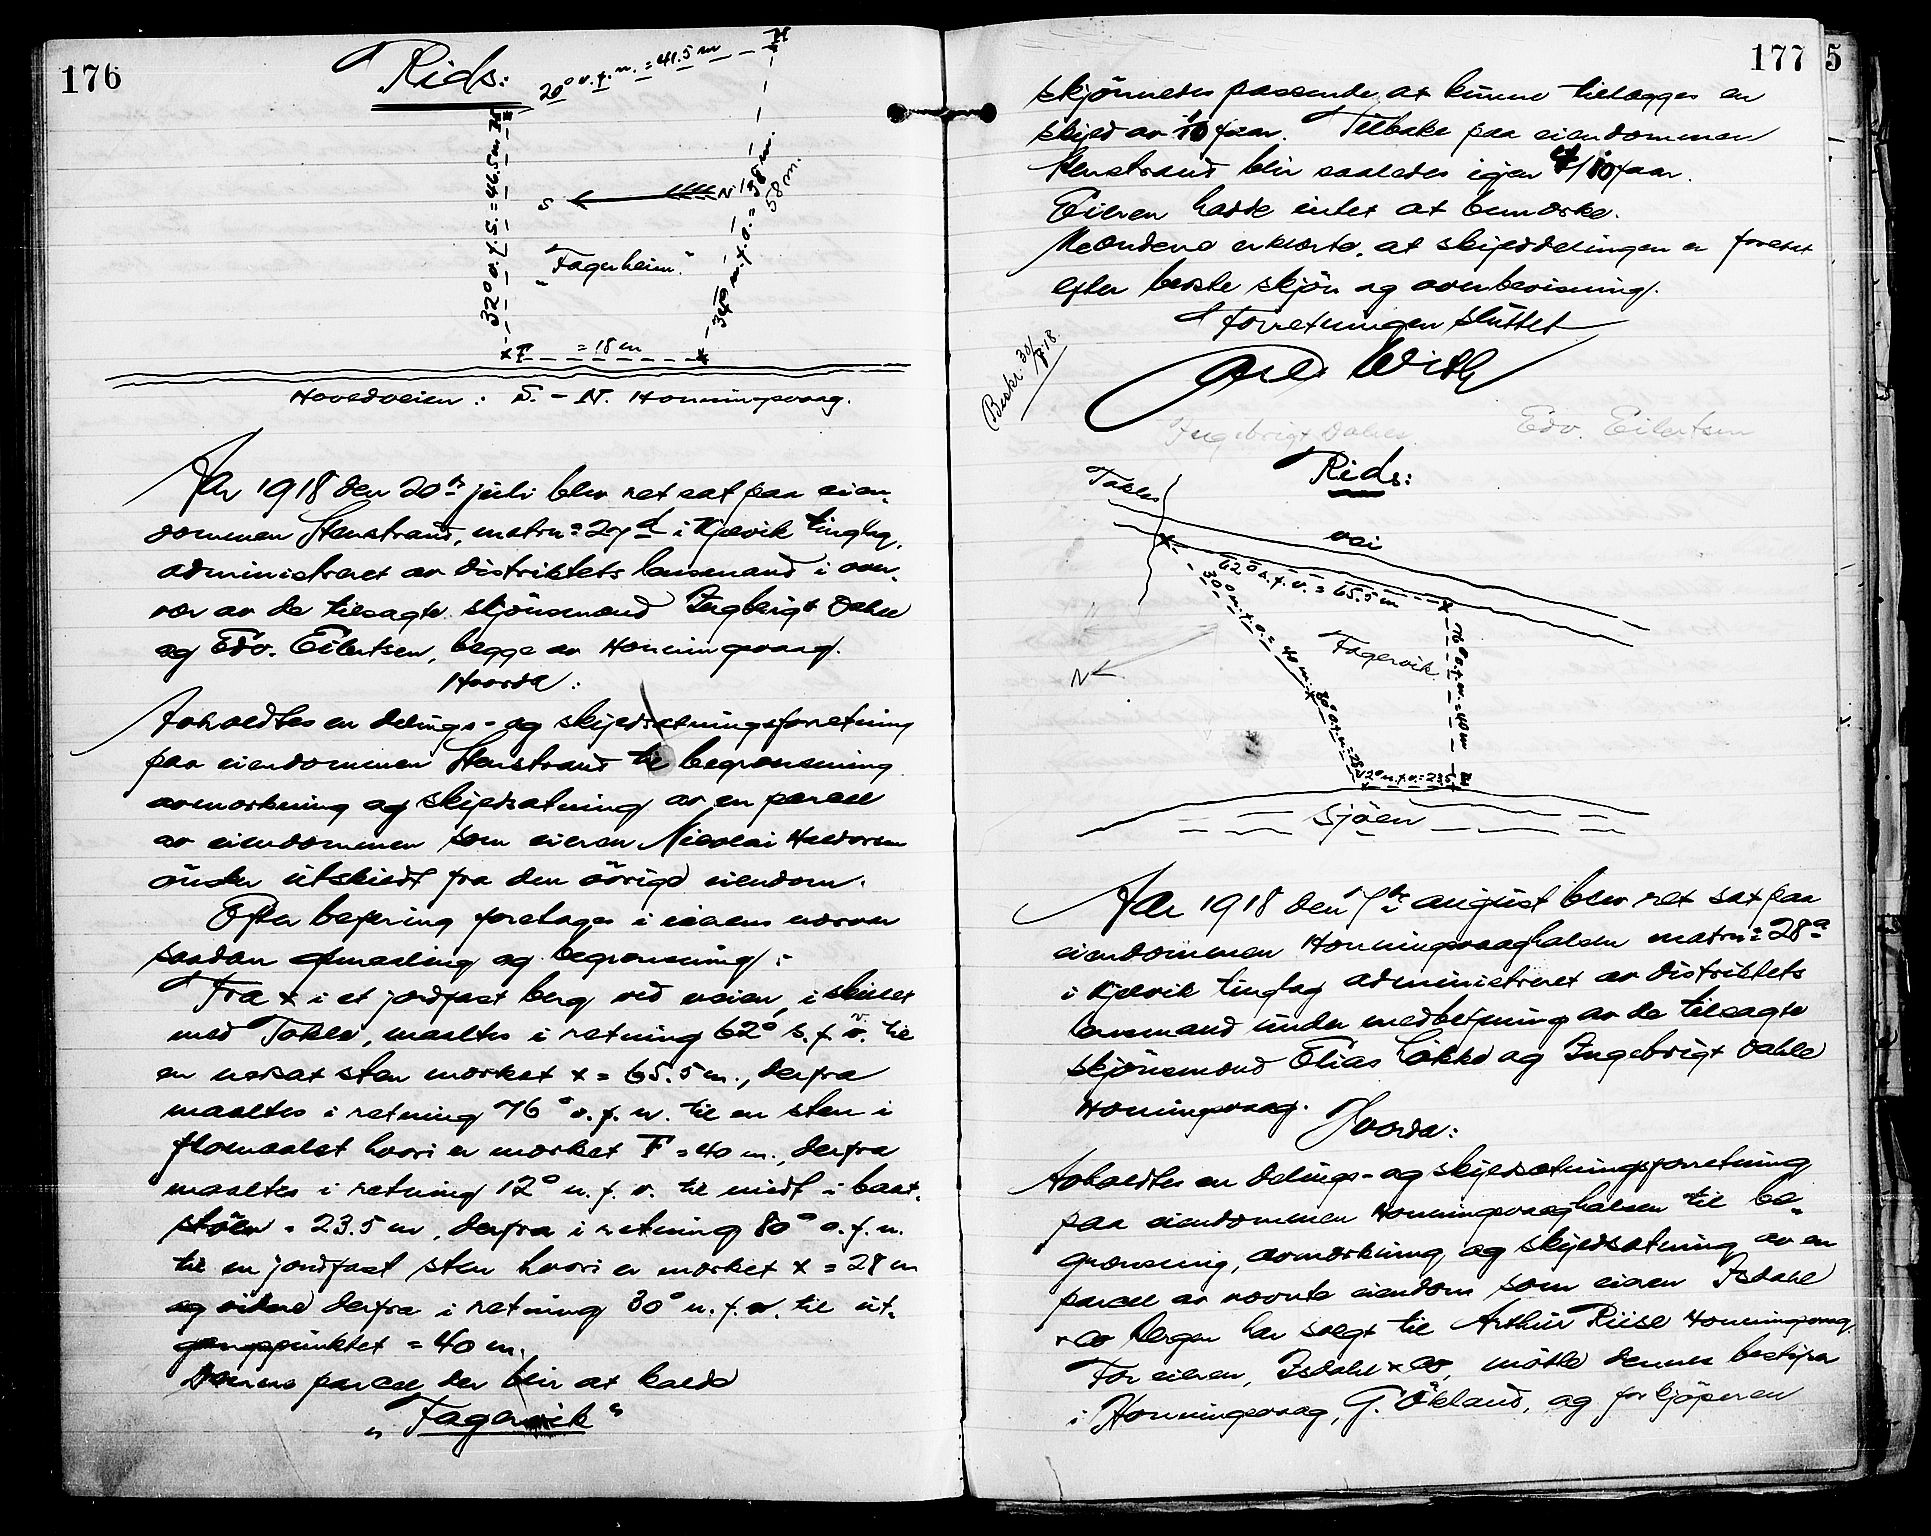 176
Rids:
20° v.f.n. = 41.5 m
32° v.f.S. = 46.5 m
S N
34° n.f.o. = 38 m.
58 m.
"Fagerheim."
= 18 m
Hovedveien: S. - N. Honningsvaag.
Aar 1918 den 20de juli blev ret sat paa eien-
dommen Stenstrand, matrn= 27d i Kjelvik tinglag,
administreret av distriktets lensmand i over-
vær av de tilsagte skjönsmænd Ingbrigt Dahle
og Edv. Eilertsen, begge av Honningsvaag.
Hvorda:
Avholdtes en delings- og skjeldsætningsforretning
paa eiendommen Stenstrand til begrænsning
avmerkning og skjeldsætning av en parcel
av eiendommen som eieren Nicolai Halvorsen
önsker utskiedt fra den övrige eiendom.
Efter befaring foretages i eierens nærvær
saadan opmaaling og begrænsning:
Fra x i et jordfast berg ved veien, i skillet
med Tokle, maaltes i retning 62° s.f.v. til
en nedsat sten merket x = 65.5 m., derfra
maaltes i retning 76° v.f.n. til en sten i
flomaalet hvori er merket F = 40 m., derfra
maaltes i retning 12° n.f.o. til midt i baat-
stöen = 23.5 m, derfra i retning 80° o.f.n.
til en jordfast sten hvori er merket x = 28 m
og videre derfra i retning 30° n.f.o. til ut-
gangspunktet = 40 m.
Denne parcel der blir at kalde
"Fagervik"
177
5
skjönnedes passende at kunne tillægges en
skjeld av 1/10 faar. Tilbake paa eiendommen
Stenstrand blir saaledes igjen 4/10 faar.
Eieren hadde intet at bemerke.
Mændene erklærte, at skyelddelingen er foretat
efter bedste skjön og overbevisning.
Forretningen sluttet
Besk. 30/8.18.
With
Ingebrigt Dahle. Edv. Eilertsen
Rids:
Tokles
vei
62° s.f.v. = 65.5 m
30° n.f.o. = 40 m.
Fagervik
76° v.f.n. = 40 m
N
80° o.f.n. = 28
12° n.f.o. = 23.5
Sjöen
Aar 1918 den 7de august blev ret sat paa
eiendommen Honningsvaaghalsen matrn= 28a
i Kjelvik tinglag administreret av distriktets
lensmand under medbetjening av de tilsagte
skjönsmænd Elias Lökke og Ingebrigt Dahle
Honningsvaag.
Hvorda:
Avholdtes en delings- og skjeldsætningsforretning
paa eiendommen Honningsvaaghalsen til be-
grænsning, avmerkning og skjeldsætning av en
parcel av nævnte eiendom som eieren Isdahl
& Co Bergen har solgt til Arthur Riise Honningsvaag.
For eieren, Isdahl & Co, mötte dennes bestyrer
i Honningsvaag, G. Ökland, og for kjöperen